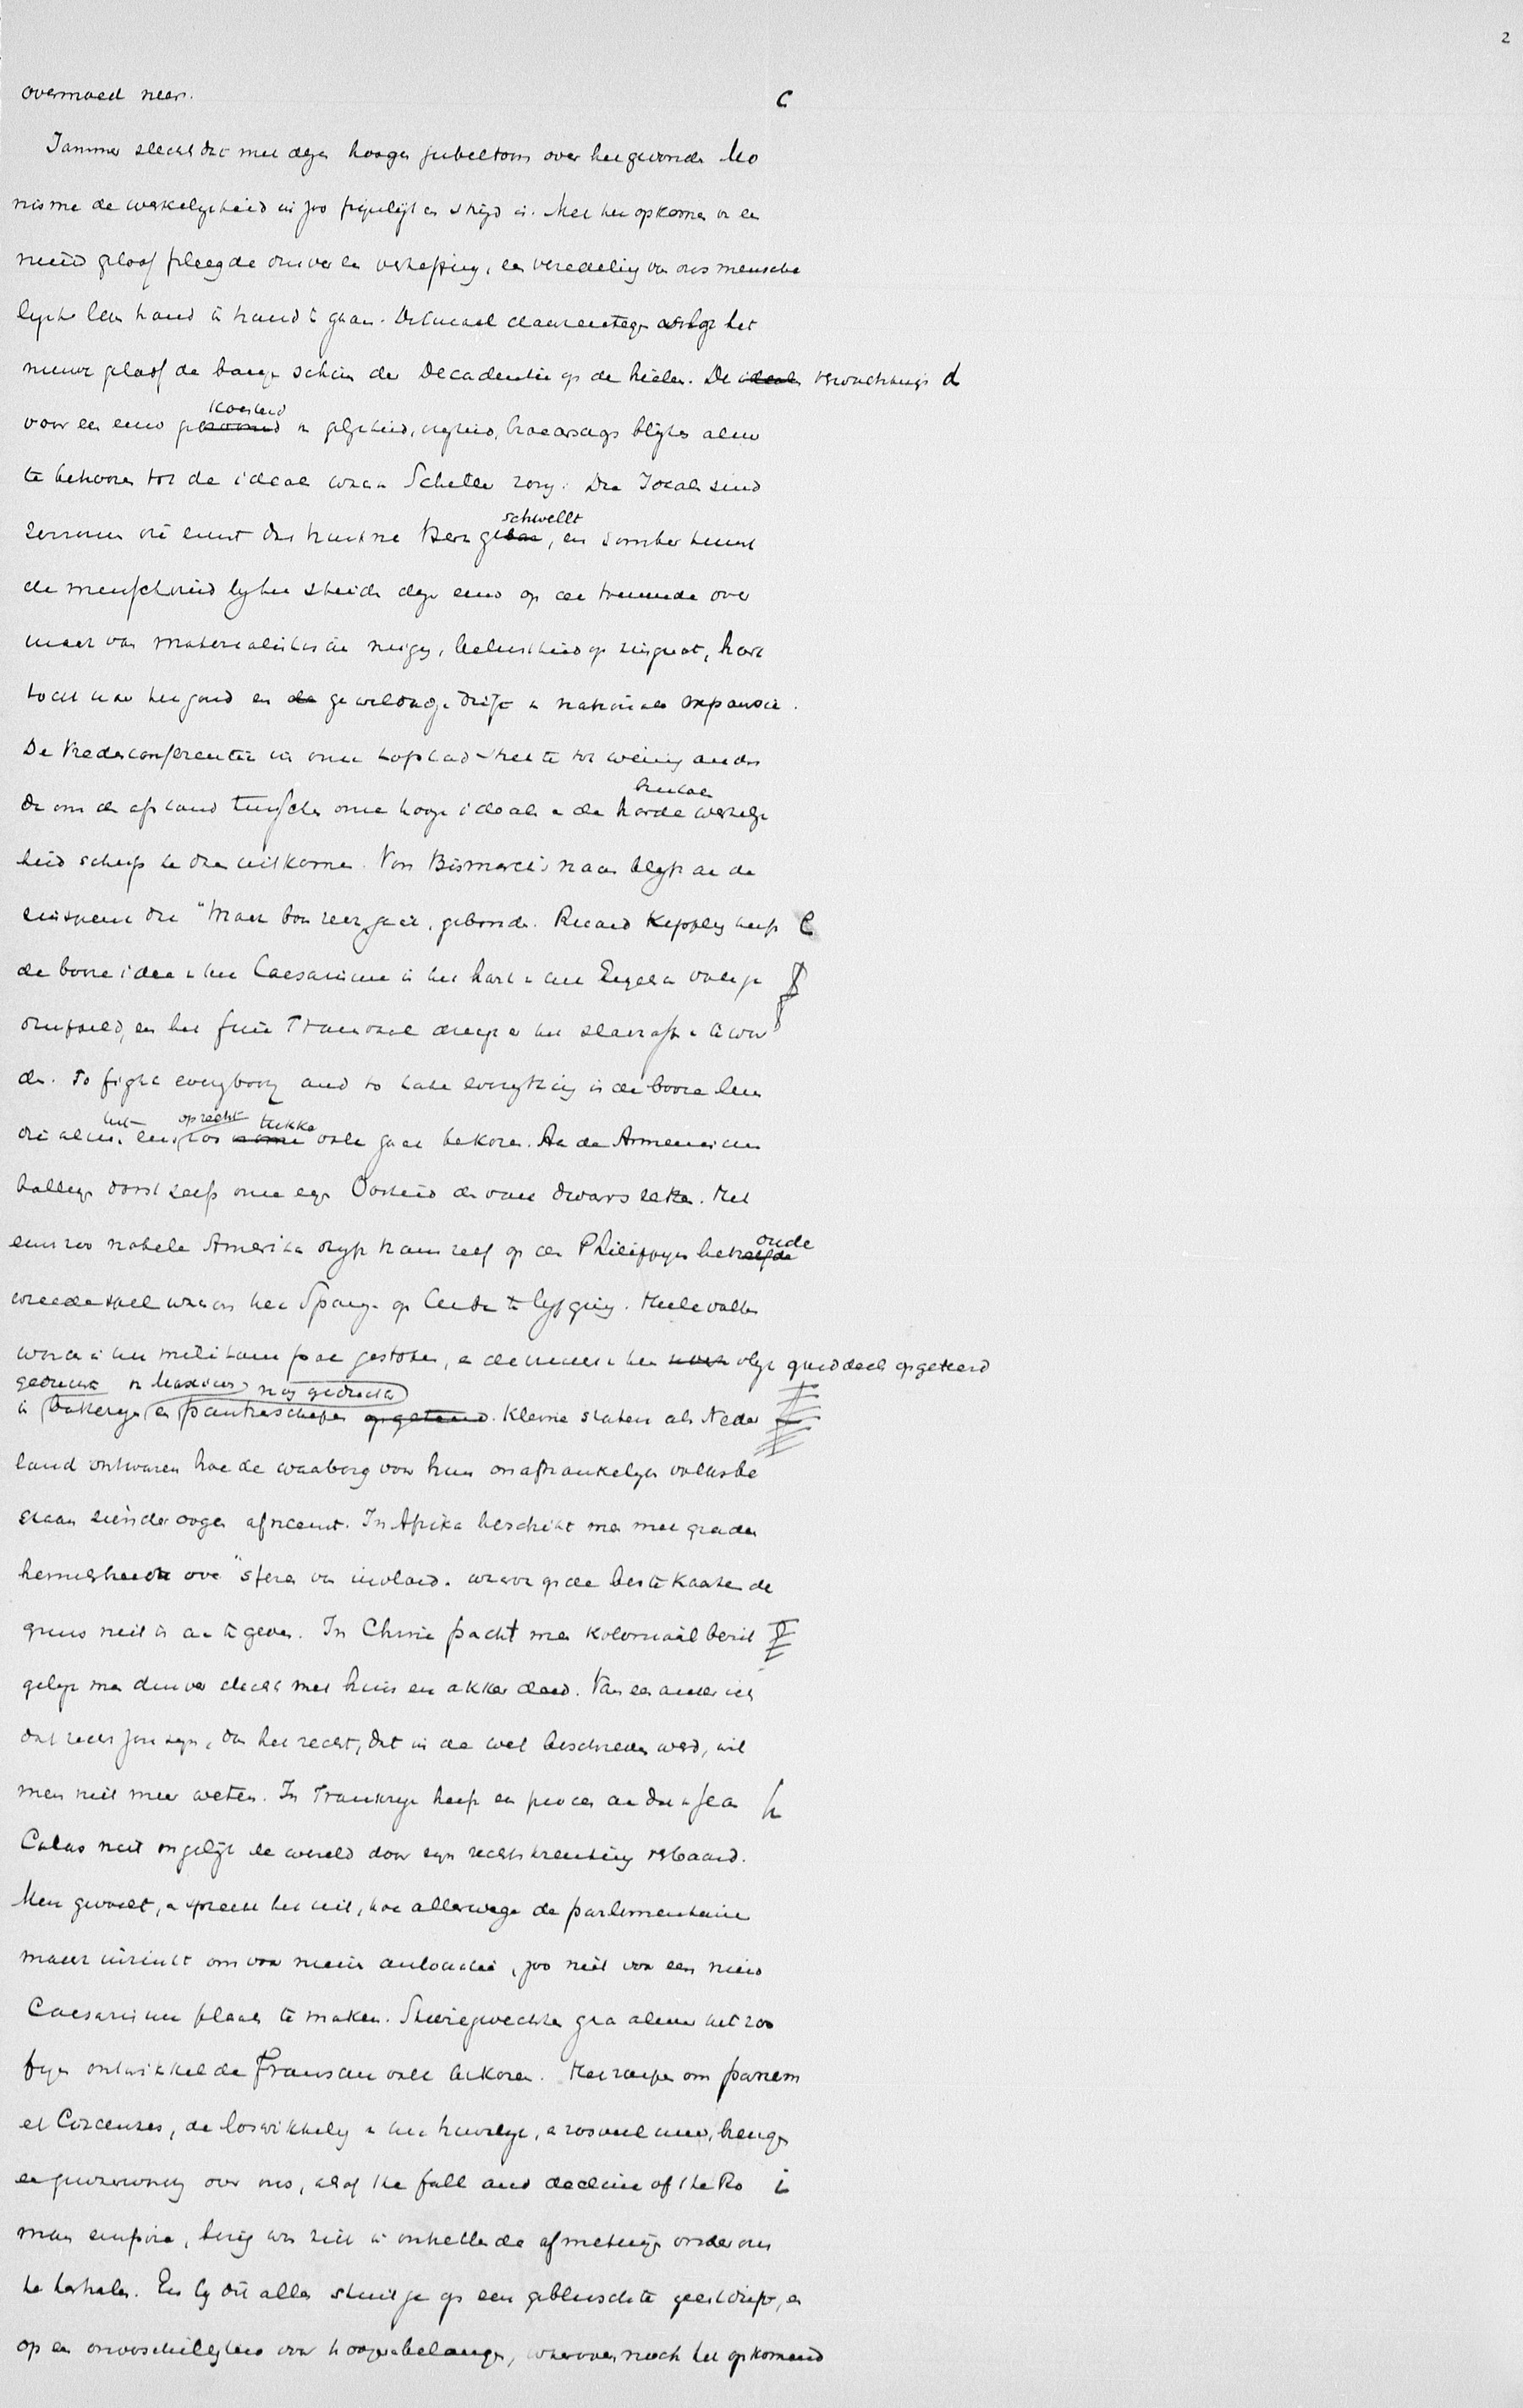 2
overmoed neer. C
Jammer slechts dat met deze hooge jubeltoon over het gevonden Mo
nisme de werkelijkheid in zoo pijnlijken strijd is. Met het opkomen van een
nieuw geloof pleegde over een verheffing, een veredeling van ons mensche
lijke leven hand in hand te gaan. Ditmaal daarentegen volgt het
nieuw geloof de bange schim der Decadentie op de hielen. De verwachtingen d
voor een eeuw gekoesterd van gelijkheid, vrijheid, broederschap blijken alweer
te behooren tot de idealen waarvan Schiller zong: Die Ideale sind
zerronnen die einst das trunkne Herz geschwellt, en somber stemt
de menschheid bij het scheiden dezer eeuw op de toenemende over
macht van materialistische neigingen, belustheid op zingenot, hart
tocht naar het goud en gewelddadige drift van nationale expansie.
De Vredesconferentie in onze hofstad strekte tot weinig anders
dan om den afstand tusschen onze hooge idealen en de harde brutale werkelijk
heid scherp te doen uitkomen. Von Bismarck's naam blijft aan de
zinspreuk die "Macht boven recht" zet, gebonden. Rudyard Kipling heeft e
de booze idee van het Caesarisme in het hart van het Engelsche volk ge
ontfutseld, en het fiere Transvaal dreigt er het slachtoffer van te wor
den. To fight everybody and to take everything is de booze leus
die alweer het eens zoo oprecht tukke volk gaat bekoren. Aan de Armeniërs
ballingen dorst zelfs onze eigen Overheid den voet dwars zetten. Het
eens zoo nobele Amerika drijft thans zelf op de Philippijnen het oude
wreede spel waarom het Spanje op Cuba te lijf ging. Heele volken
worden in het militaire pak gestoken, en de welvaart van het volk goeddeels opgeteerd
gedrukt in batterijen en pantserschepen. Kleine staten als Neder f
land ontwaren hoe de waarborg voor hun onafhankelijk volksbe
staan ziender oogen afneemt. In Afrika beschikt men met graden
hemelsbreedte over "sferen van invloed" waarvan op de beste kaarten de
grens niet is aan te geven. In China pacht men koloniaal bezit
gelijk men dusver slechts met huis en akker deed. Van een ander recht
dat recht zou zijn, dan het recht, dat in de wet beschreven werd, wil
men niet meer weten. In Frankrijk heeft een proces aan dat van Jean h
Calas niet ongelijk de wereld door zijn rechtskrenking verbaasd.
Men gevoelt, en spreekt het uit, hoe allerwege de parlementaire
macht inzinkt om voor nieuwe autocratie, zoo niet voor een nieuw
Caesarisme plaats te maken. Stierengevechten gaan alweer het zoo
fijn ontwikkelde Fransche volk bekoren. Het roepen om panem
et Circenses, de loswikkeling van het huwelijk, en zooveel meer, brengt
een huivering over ons, alsof the fall and decline of the Ro i
man empire, bezig was zich in ontzettende afmetingen onder ons
te herhalen. En bij dit alles stuit ge op een gebluschte geestdrift, en
op een onverschilligheid voor hooger belangen, waarover noch het opkomend